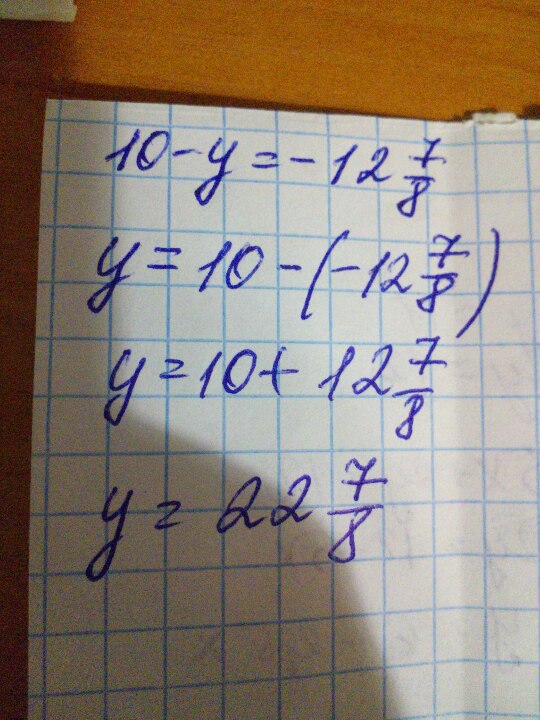 10 - y = - 12 7/8
y = 10 - (-12 7/8)
y = 10 + 12 7/8
y = 22 7/8